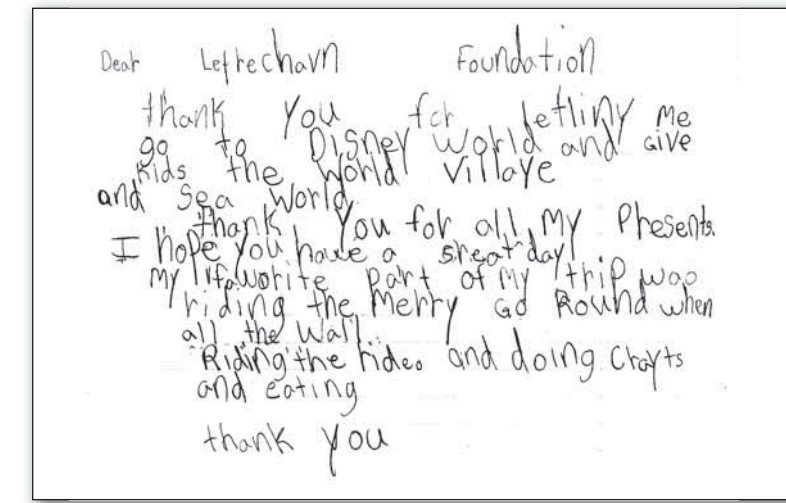 Dear Leprechaun Foundation
thank you for letting me
go to Disney World and Give
Kids the World Village
and Sea World.
thank you for all my Presents.
I hope you have a great day!
My favorite part of my trip was
riding the Merry Go Round when
all the Wall
Riding the rides and doing Crafts
and eating
thank you